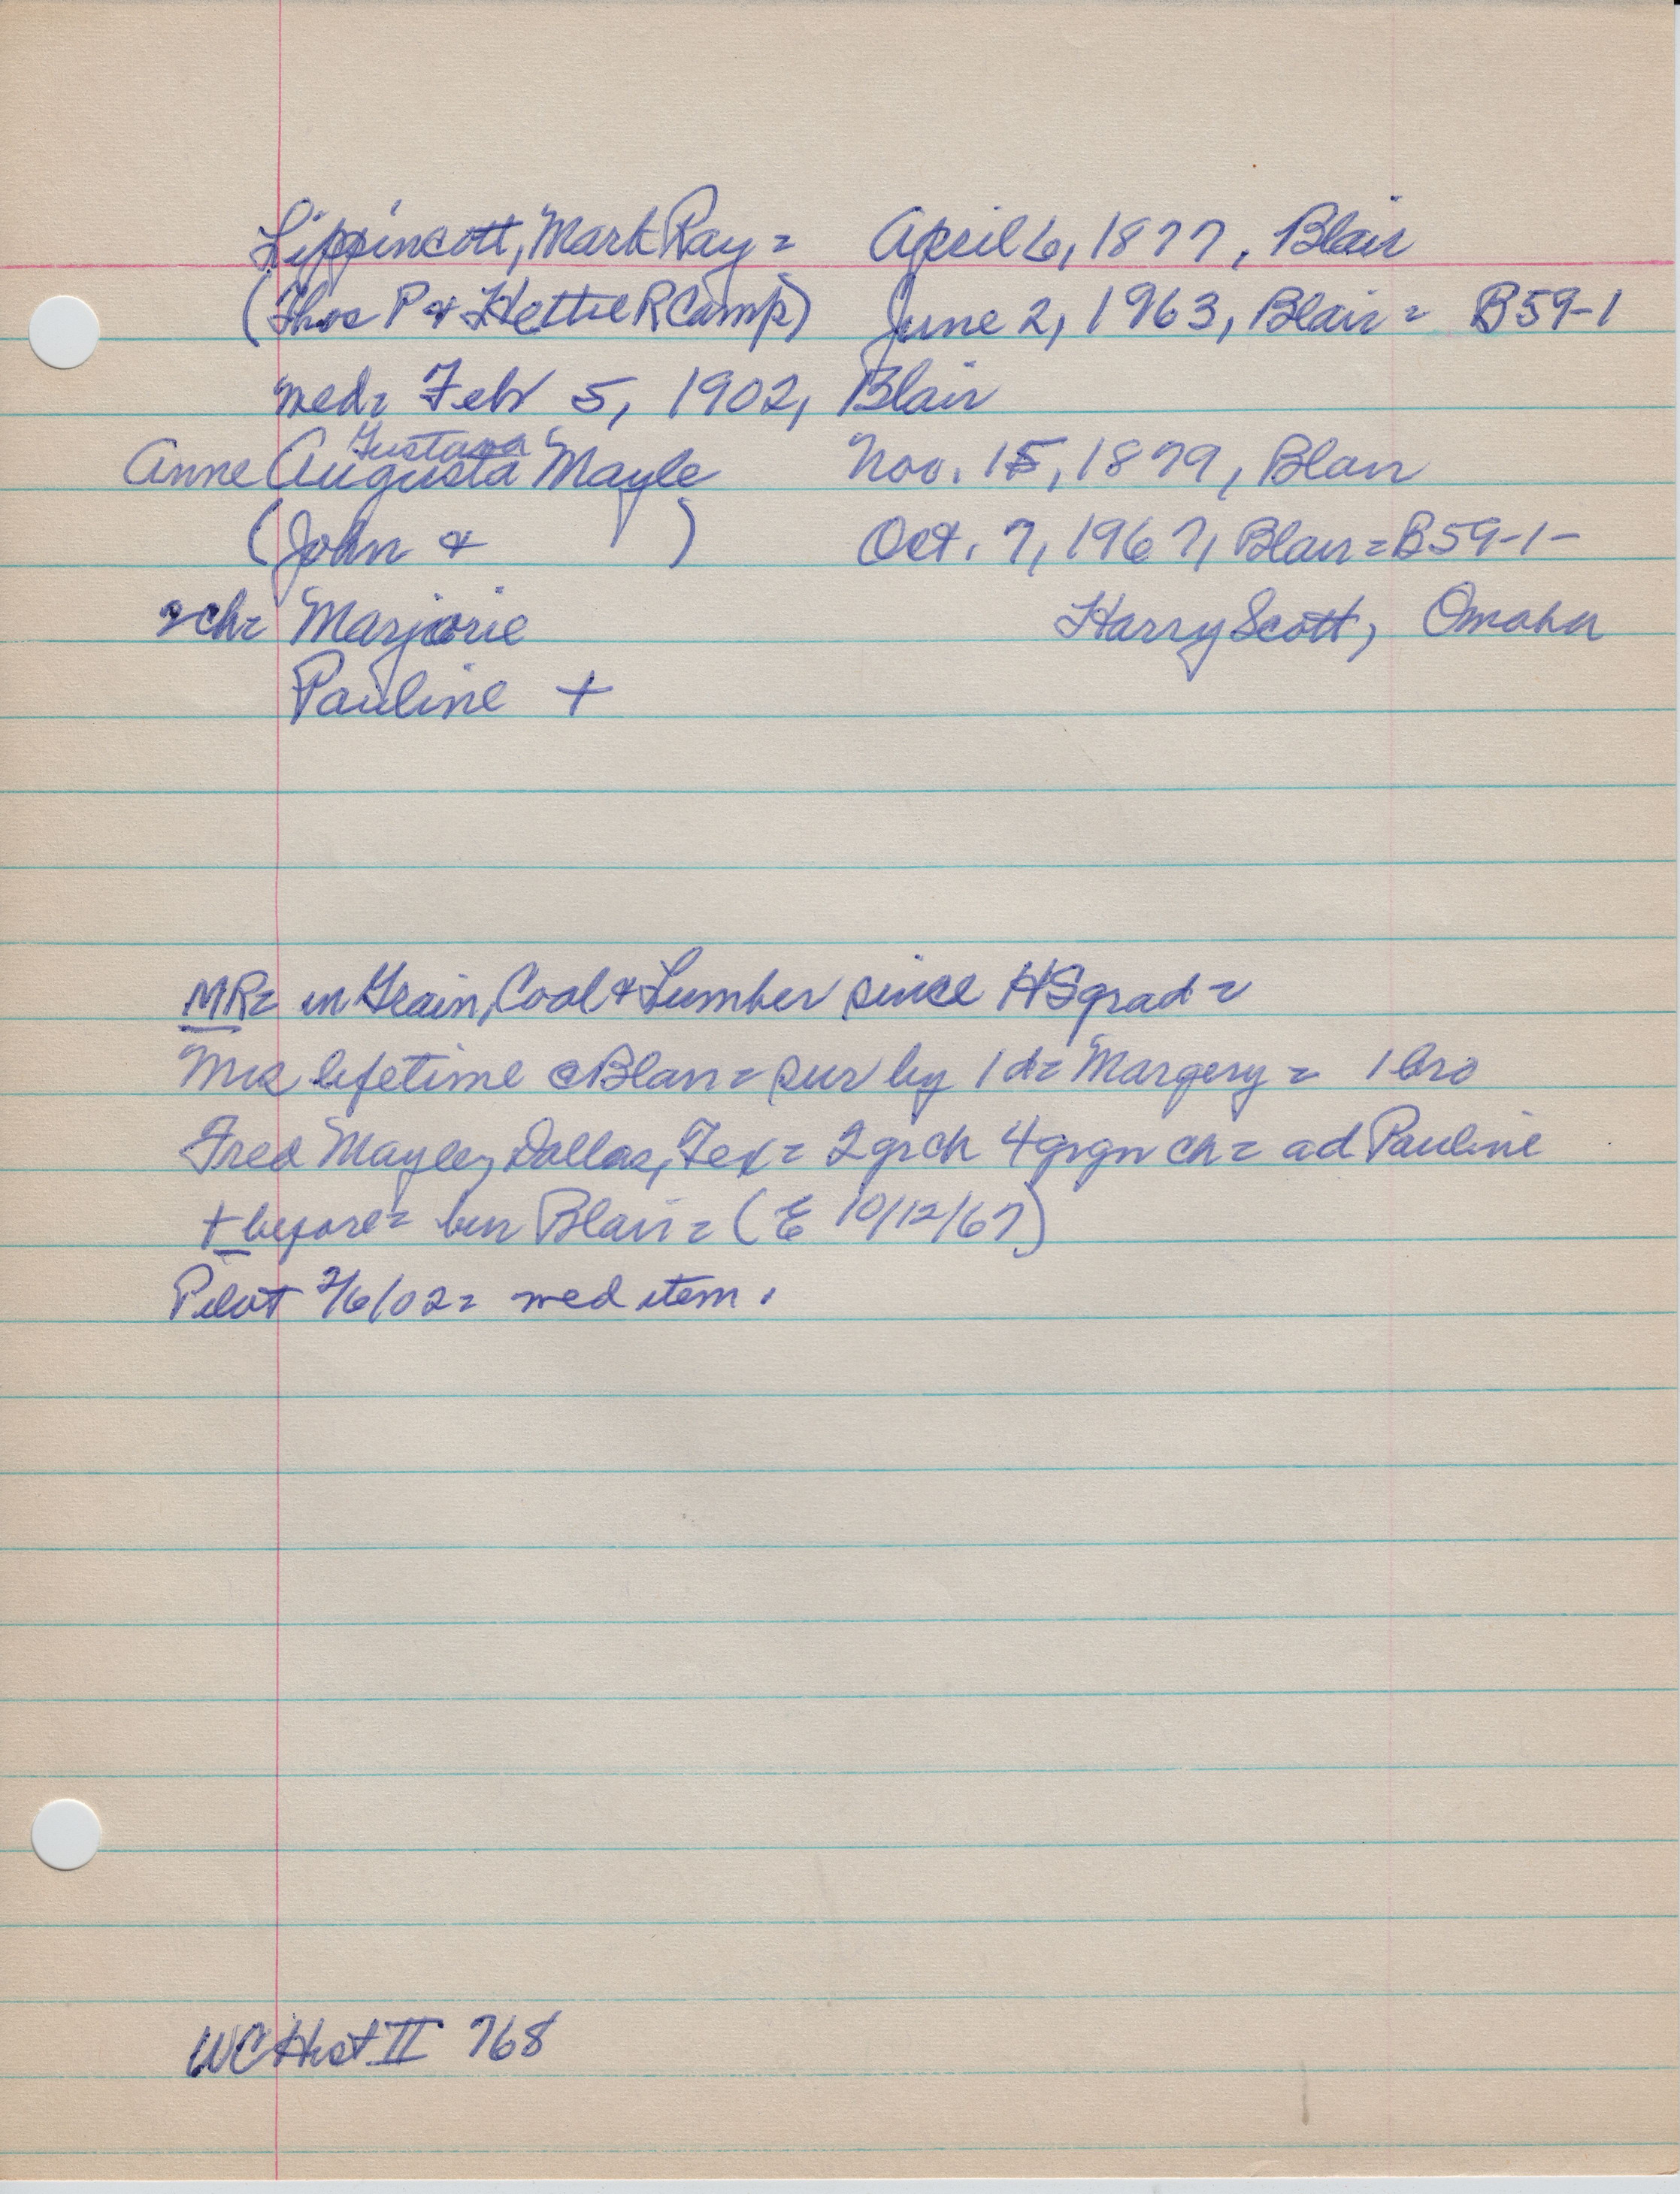 Lippincott, Mark Ray = April 6, 1877, Blair
(Thos P & Hettie R Camp) June 2, 1963, Blair = B59-1
med = Feb 5, 1902, Blair
Gustava
Anne Augusta Mayle Nov. 15, 1879, Blair
(John & ) Oct. 7, 1967, Blair = B59-1-
2ch = Marjorie Harry Scott, Omaha
Pauline +
MR = in Grain, Coal & Lumber since HS grad =
Mrs lifetime c Blair = sur by 1 d = Margery = 1 bro
Fred Mayle, Dallas, Tex = 2 grch 4 grgr ch = a d Pauline
+ before = bur Blair = (E 10/12/67)
Pilot 2/6/02 = med item.
WC Hist II 768